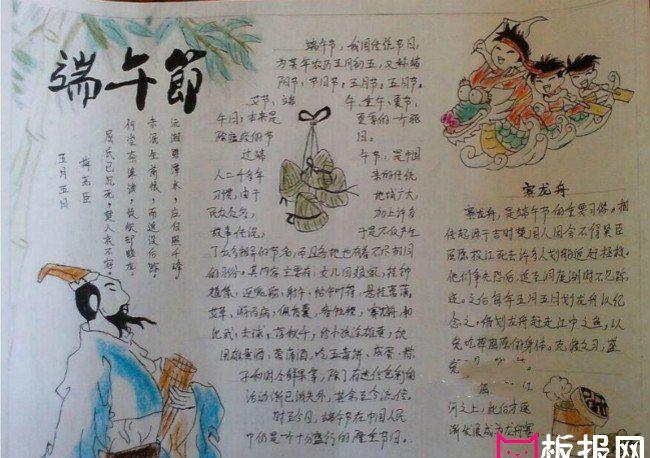 端午節
五月五日
梅尧臣
屈氏已沉死，楚人哀不容。
何尝奈谗谤，徒欲却蛟龙。
未泯生前恨，而追没后踪。
沅湘碧潭水，应自照千峰。
端午节，我国传统节日，
为每年农历五月初五，又称端
阳节、午日节、五月节、五月节、
艾节、端 午、重午、夏节，
午日，本来是 夏季的一个驱
除瘟疫的节 日。
过端 午节，是中国
人二千多年 来的传统
习惯，由于 地域广大，
民族众多， 加上许多
故事传说， 于是不仅产生
了众多相异的节名，而且各地也有着不尽相同
的习俗。其内容主要有：女儿回娘家，挂钟
馗像，迎鬼船、躲午、帖午叶符，悬挂菖蒲、
艾草，游百病，佩香囊，备牲醴，赛龙舟，
比武，击球，荡秋千，给小孩涂雄黄，
饮用雄黄酒、菖蒲酒，吃五毒饼、咸蛋、粽
子和时令鲜果等，除了有迷信色彩的
活动渐已消失外，其余至今流传。
时至今日，端午节在中国人民
中仍是一个十分盛行的隆重节日。
赛龙舟
赛龙舟，是端午节的主要习俗。相
传起源于古时楚国人因舍不得贤臣
屈原投江死去许多人划船追赶拯救。
他们争先恐后，追至洞庭湖时不见踪
迹。之后每年五月五日划龙舟以纪
念之。借划龙舟赶走江中之鱼，以
免吃掉屈原的身体。竞渡之习，盛
河之上，此俗才逐
渐发展成为龙舟赛
板报网